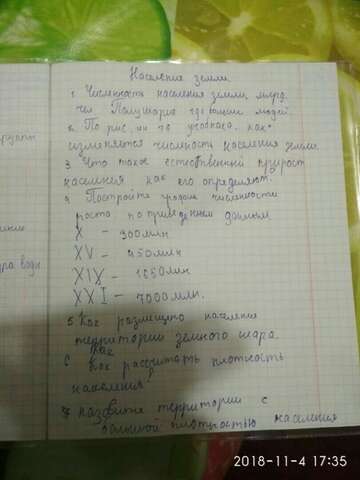 Население земли
1. Численность населения земли, млрд.
чел. где людей.
2. По рис. на учебника. как
изменяется числность населения земли.
3. Что такое естественный прирост
населения как его определяют?
4 Постройте численности
роста по приведенем данным
X - 300 млн.
XV - 450 млн
XIX - 1650 млн
XXI - 7000 млн.
5 Как размещено население
территории земного шара.
6 Как
Как рассчитать плотность
населения?
7 назовите территории с
большой плотностью населения
ра води
2018-11-4 17:35